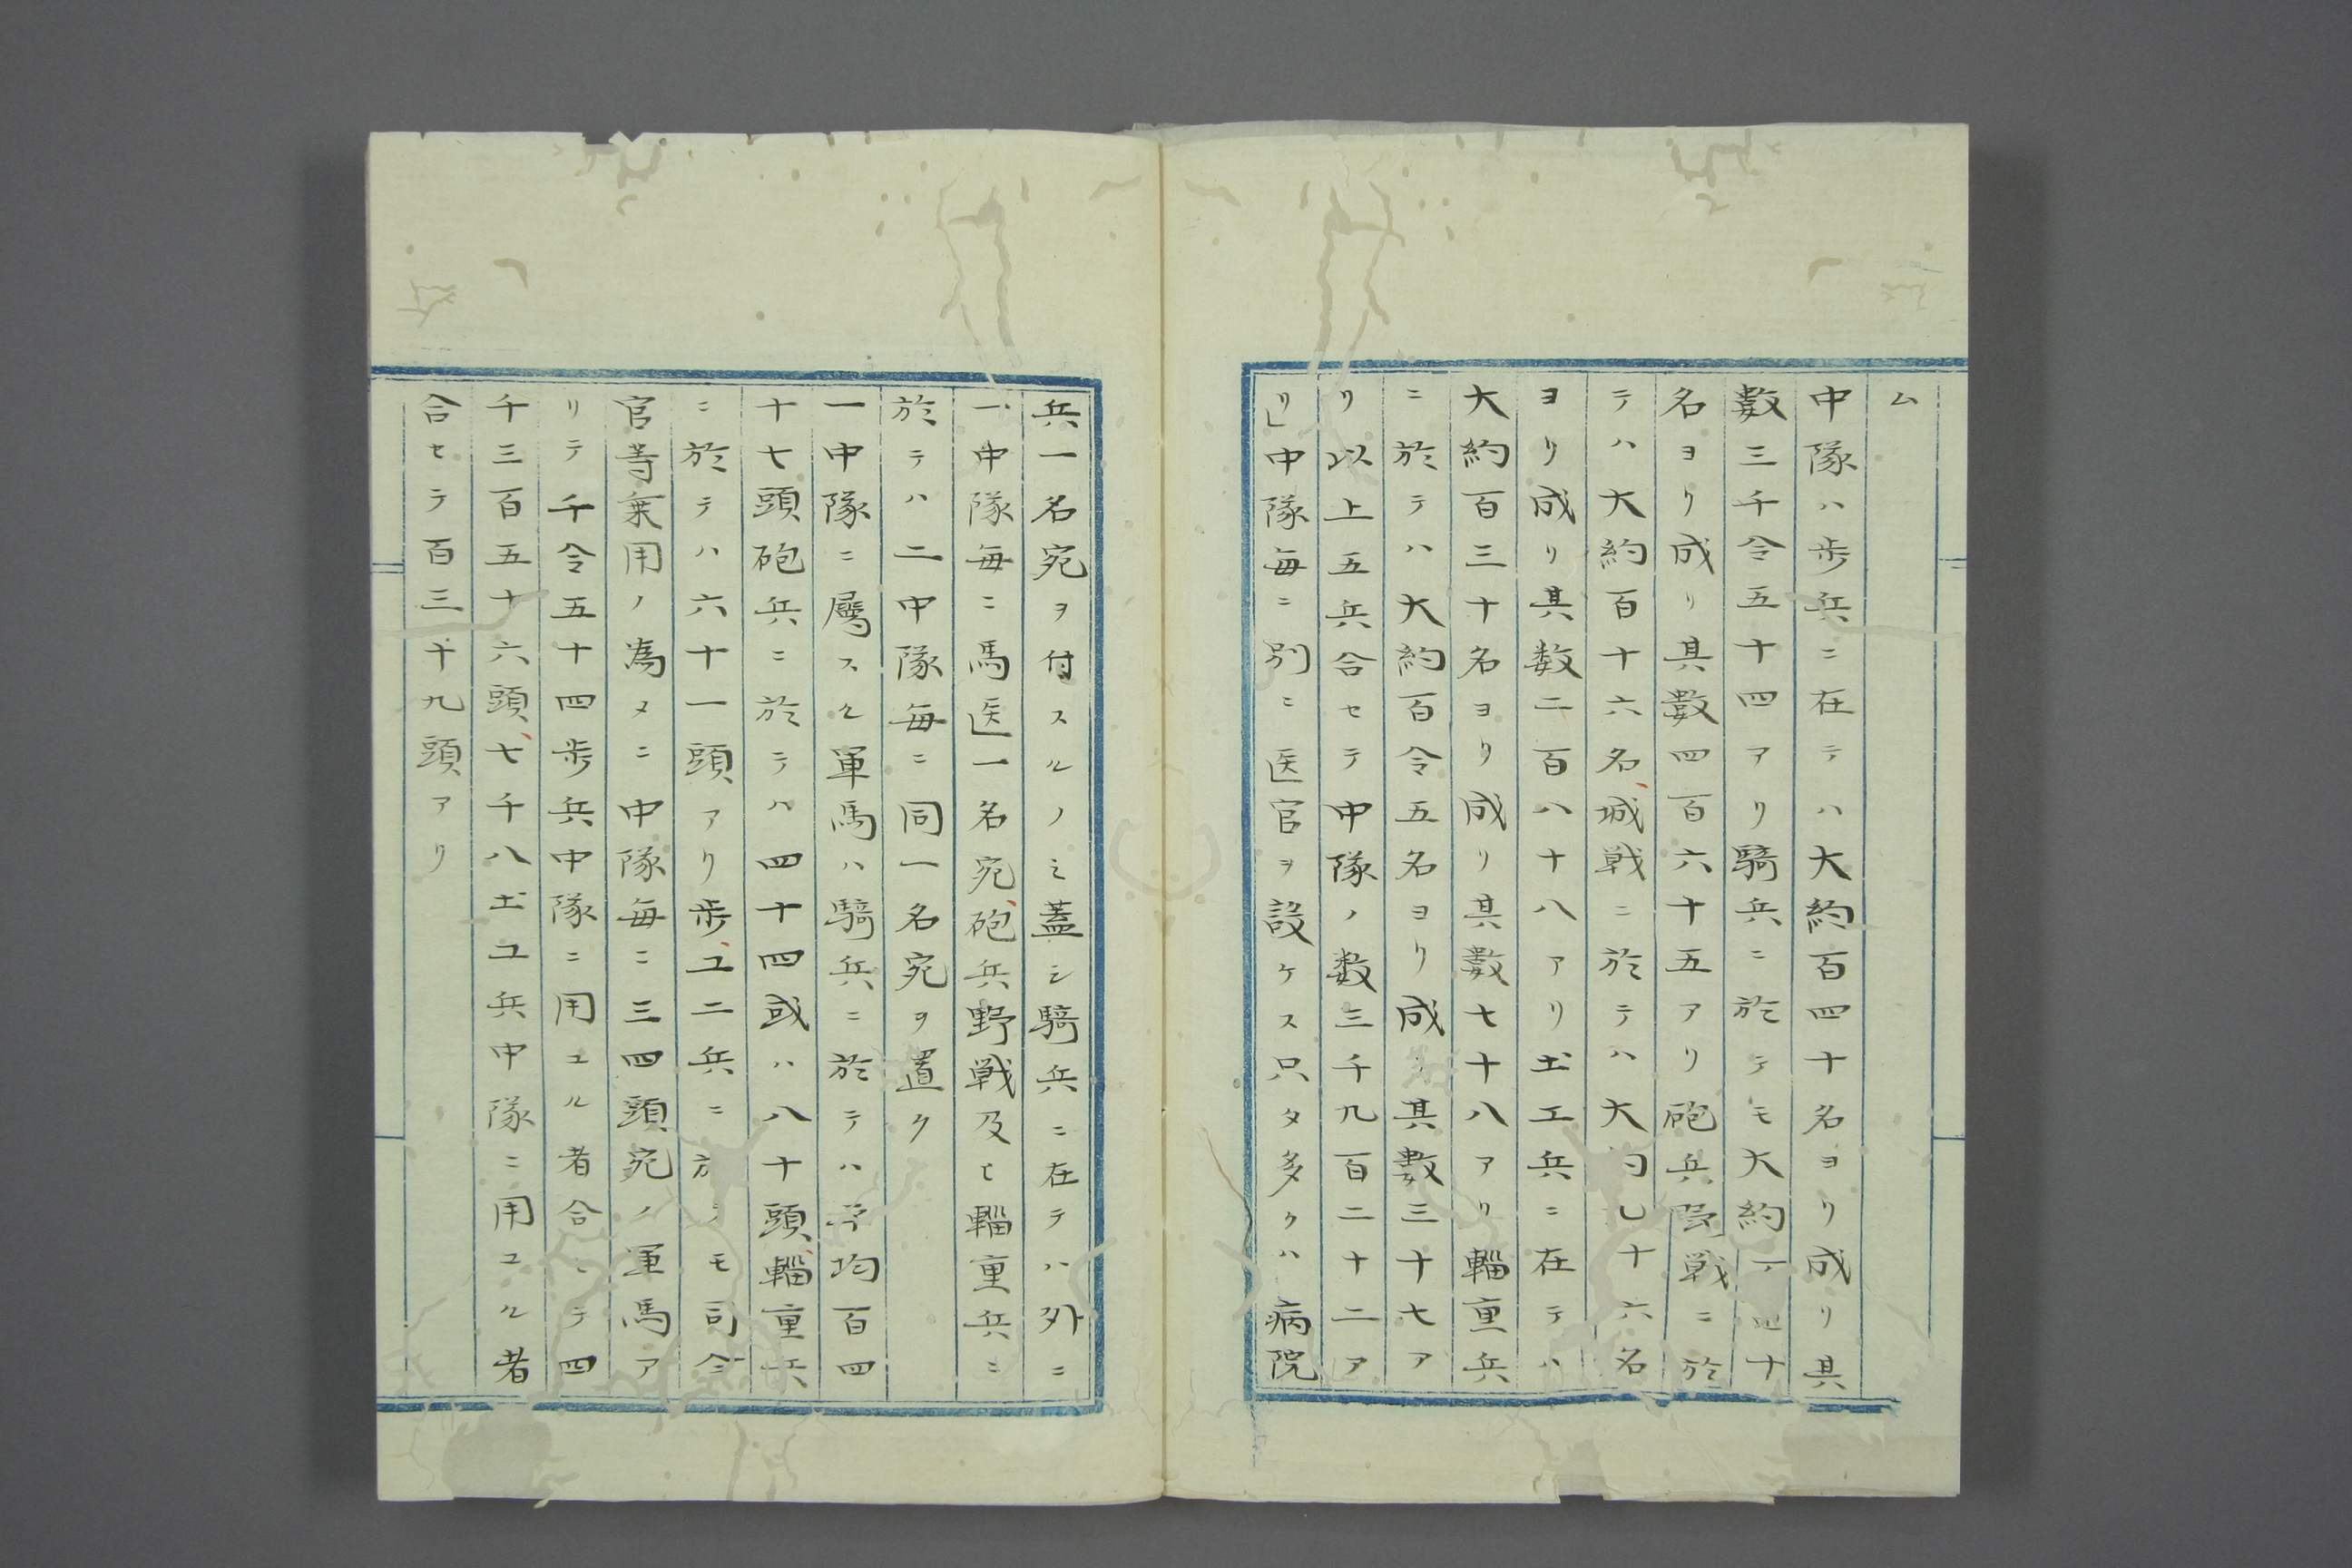 ム
中隊ハ歩兵ニ在テハ大約百四十名ヨリ成リ其
数三千令五十四アリ騎兵ニ於テモ大約百四十
名ヨリ成リ其數四百六十五アリ砲兵野戦ニ於
テハ大約百十六名、城戦ニ於テハ大約九十六名
ヨリ成リ其数二百八十八アリ土工兵ニ在テハ
大約百三十名ヨリ成リ其數七十八アリ輜重兵
ニ於テハ大約百令五名ヨリ成リ其數三十七ア
リ以上五兵合セテ中隊ノ数三千九百二十二ア
リ」中隊毎ニ別ニ医官ヲ設ケス只タ多クハ病院
兵一名宛ヲ付スルノミ蓋シ騎兵ニ在テハ外ニ
一中隊毎ニ馬医一名宛、砲兵野戦及ヒ輜重兵ニ
於テハ二中隊毎ニ同一名宛ヲ置ク
一中隊ニ屬スル軍馬ハ騎兵ニ於テハ平均百四
十七頭砲兵ニ於テハ四十四或ハ八十頭、輜重兵
ニ於テハ六十一頭アリ歩、工二兵ニ於テモ司令
官等乗用ノ為メニ中隊毎ニ三四頭宛ノ軍馬ア
リテ千令五十四歩兵中隊ニ用ユル者合シテ四
千三百五十六頭、七千八土工兵中隊ニ用ユル者
合セテ百三十九頭アリ